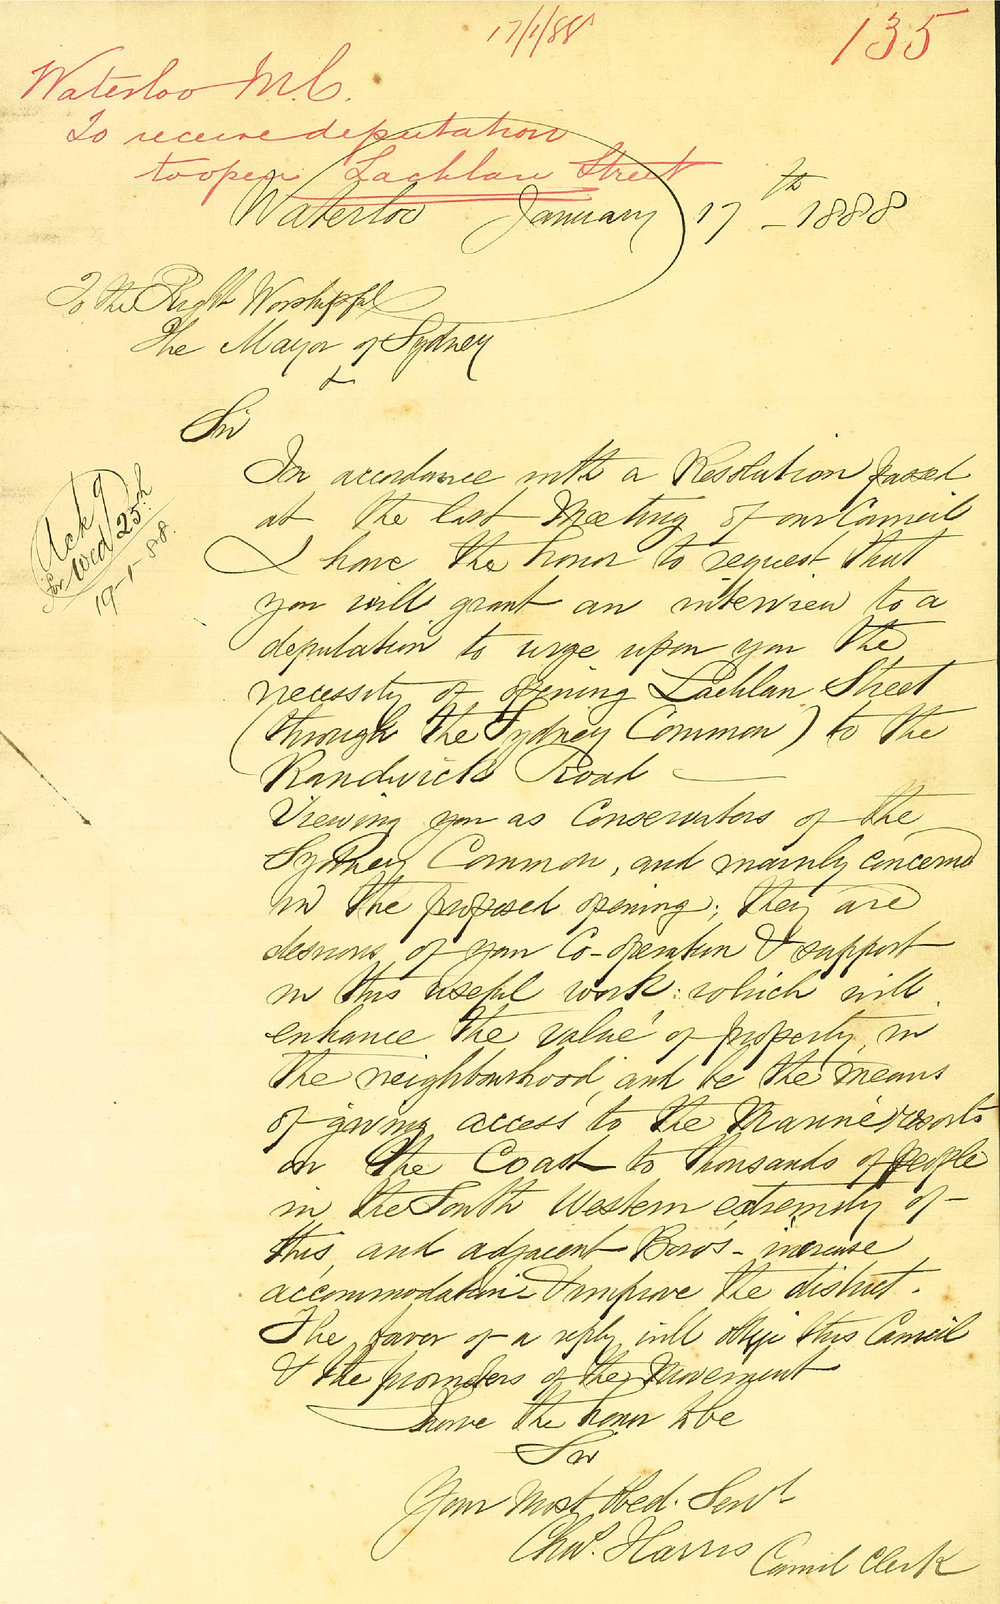 17/1/88
135
Waterloo M.C.
To receive deputation
to open Lachlan Street
Waterloo January 17th - 1888
To the Right Worshipful
The Mayor of Sydney
Sir
In accordance with a Resolution passed
at the last Meeting of our Council
I have the honor to request that
you will grant an interview to a
deputation to urge upon you the
necessity of opening Lachlan Street
(through the Sydney Common) to the
Randwick Road
Ackd
for Wed 25th
19-1-88.
Viewing you as Conservators of the
Sydney Common, and mainly concerned
in the proposed opening; they are
desirous of your Co-operation & support
in this useful work: which will
enhance the value of property in
the neighbourhood, and be the means
of giving access to the Marine resorts
on the Coast to thousands of people
in the South Western extremity of
this, and adjacent Boro's - increase
accommodation - & improve the district.
The favor of a reply will oblige this Council
& the promoters of the Movement
I have the honor to be
Sir
Your Most Obed. Servt
Chas. Harris Council Clerk